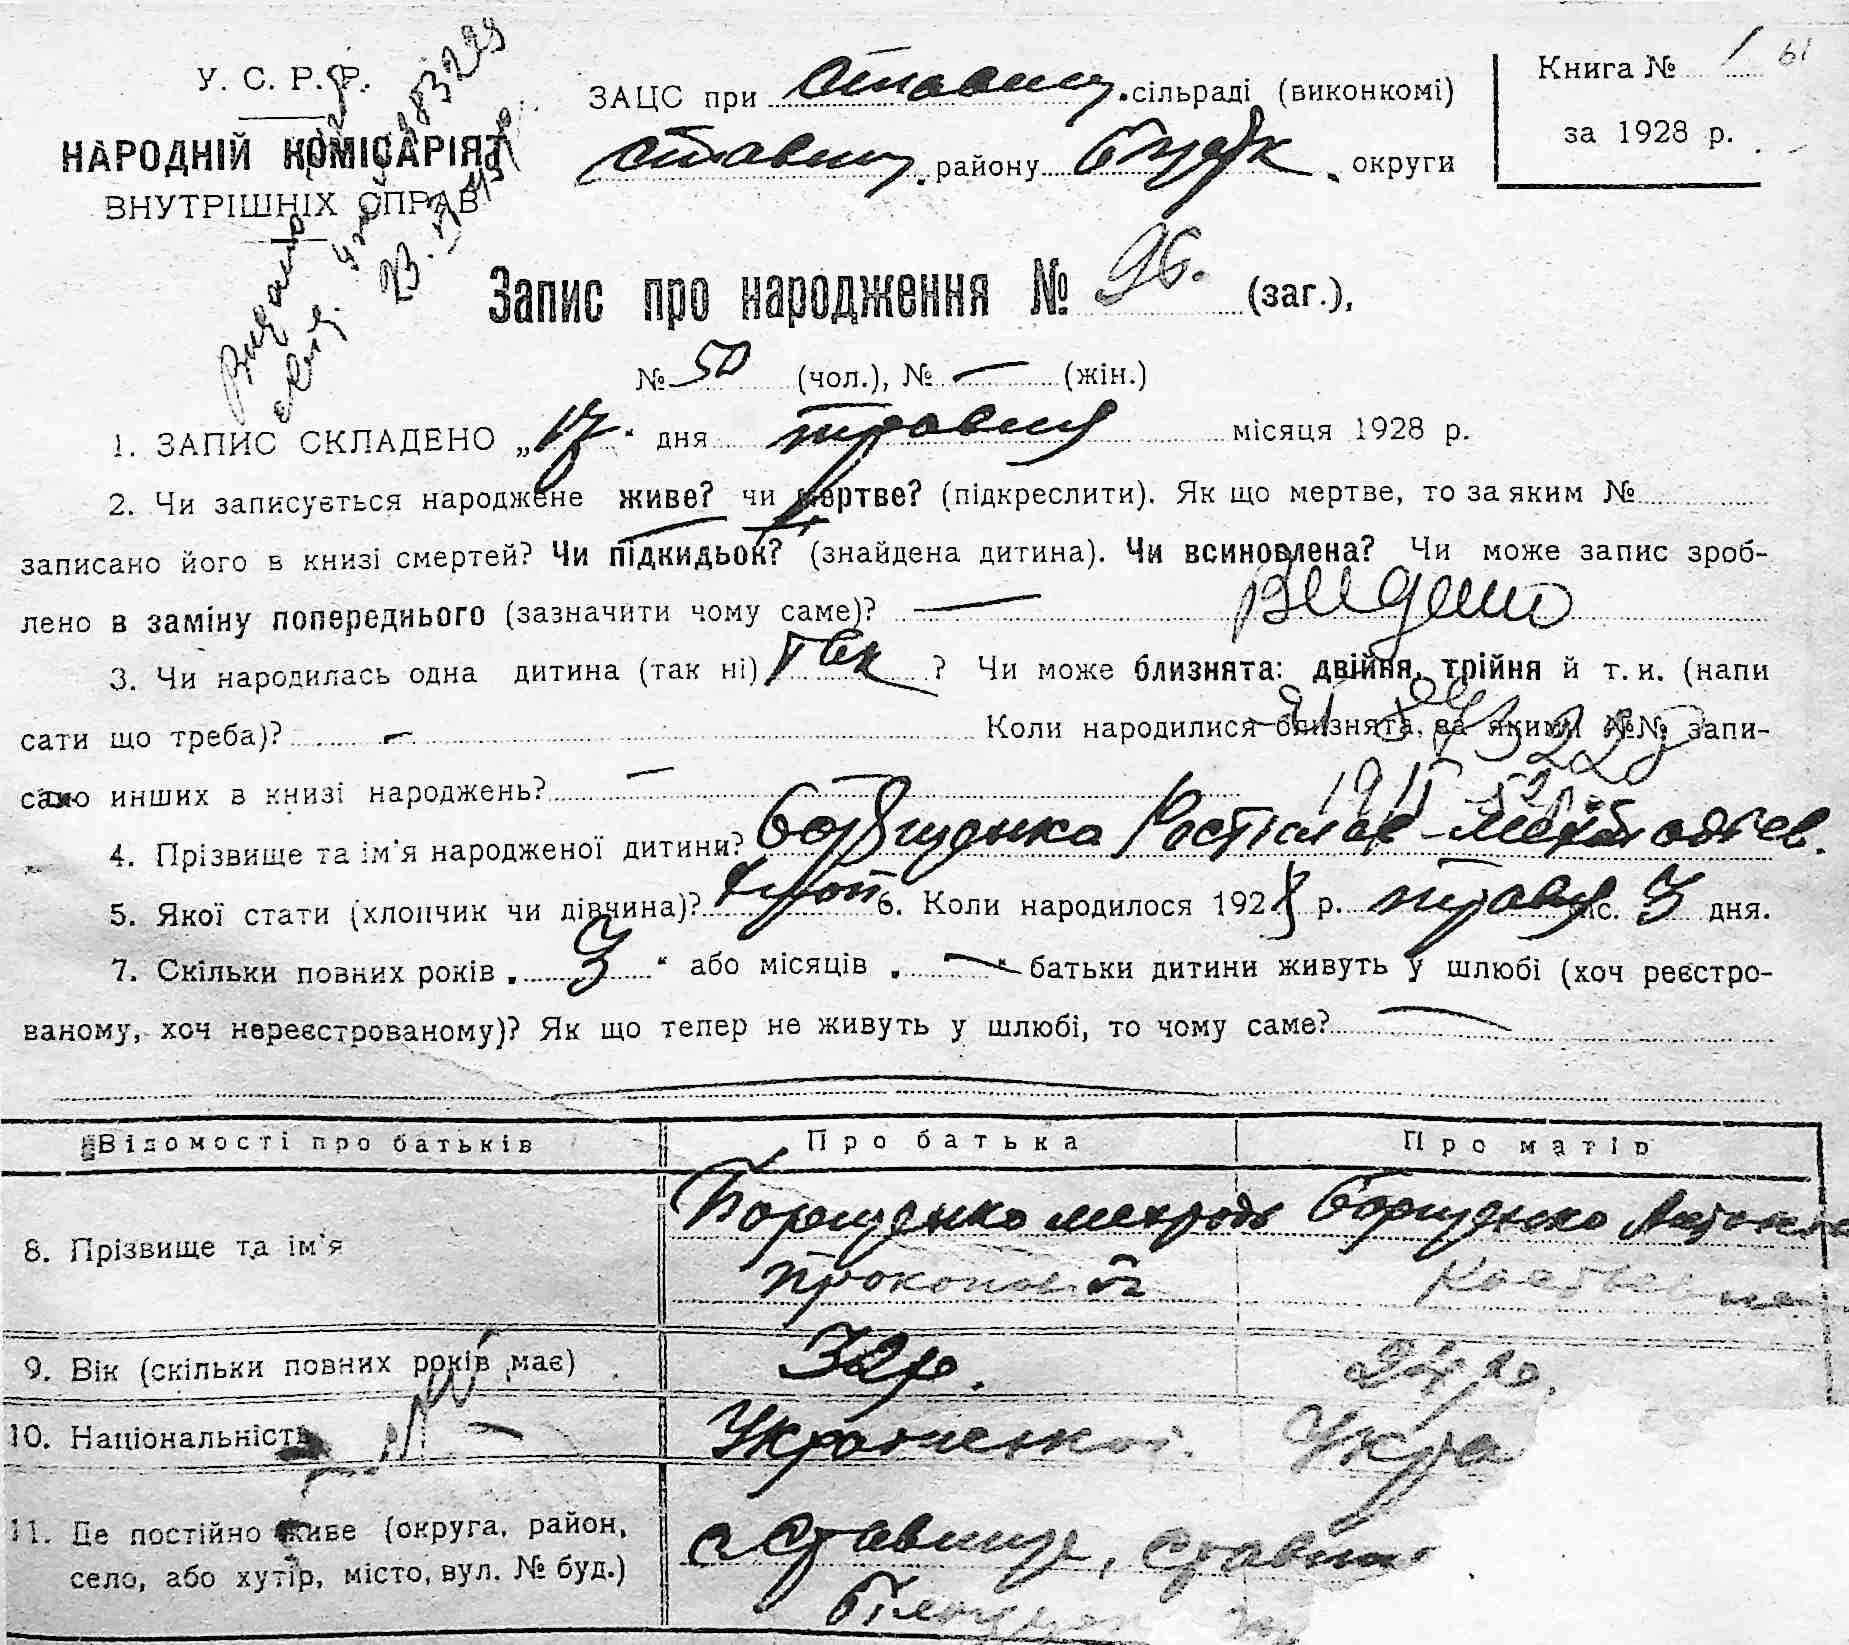 У. С. Р. Р.
НАРОДНІЙ КОМІСАРІЯТ
ВНУТРІШНІХ СПРАВ
ЗАЦС при Ставищ. сільраді (виконкомі)
Ставищ. району округи
Книга № 1 61
за 1928 р.
Запис про народження № 96. (заг.),
№ 50 (чол.), № — (жін.)
1. ЗАПИС СКЛАДЕНО „17“ дня травня місяця 1928 р.
2. Чи записується народжене живе? чи мертве? (підкреслити). Як що мертве, то за яким №
записано його в книзі смертей? Чи підкидьок? (знайдена дитина). Чи всиновлена? Чи може запис зроб-
лено в заміну попереднього (зазначити чому саме)? — Видано
3. Чи народилась одна дитина (так ні) Так ? Чи може близнята: двійня, трійня й т. и. (напи
сати що треба)? - Коли народилися близнята, за якими №№ запи-
сано инших в книзі народжень? —
4. Прізвище та ім'я народженої дитини? Борщенко Ростіслав Мехтодіев.
5. Якої статі (хлопчик чи дівчина)? хлоп 6. Коли народилося 1928 р. травня міс. 3 дня.
7. Скільки повних років „ 3 “ або місяців „ — “ батьки дитини живуть у шлюбі (хоч реєстро-
ваному, хоч нереєстрованому)? Як що тепер не живуть у шлюбі, то чому саме? —
Відомості про батьків Про батька Про матір
8. Прізвище та ім'я Борщенко Борщенко
9. Вік (скільки повних років має) 32 р. 24 р.
10. Національність Української Укра
11. Де постійно живе (округа, район, с Ставище, Ставищ
село, або хутір, місто, вул. № буд.) Білоцерк